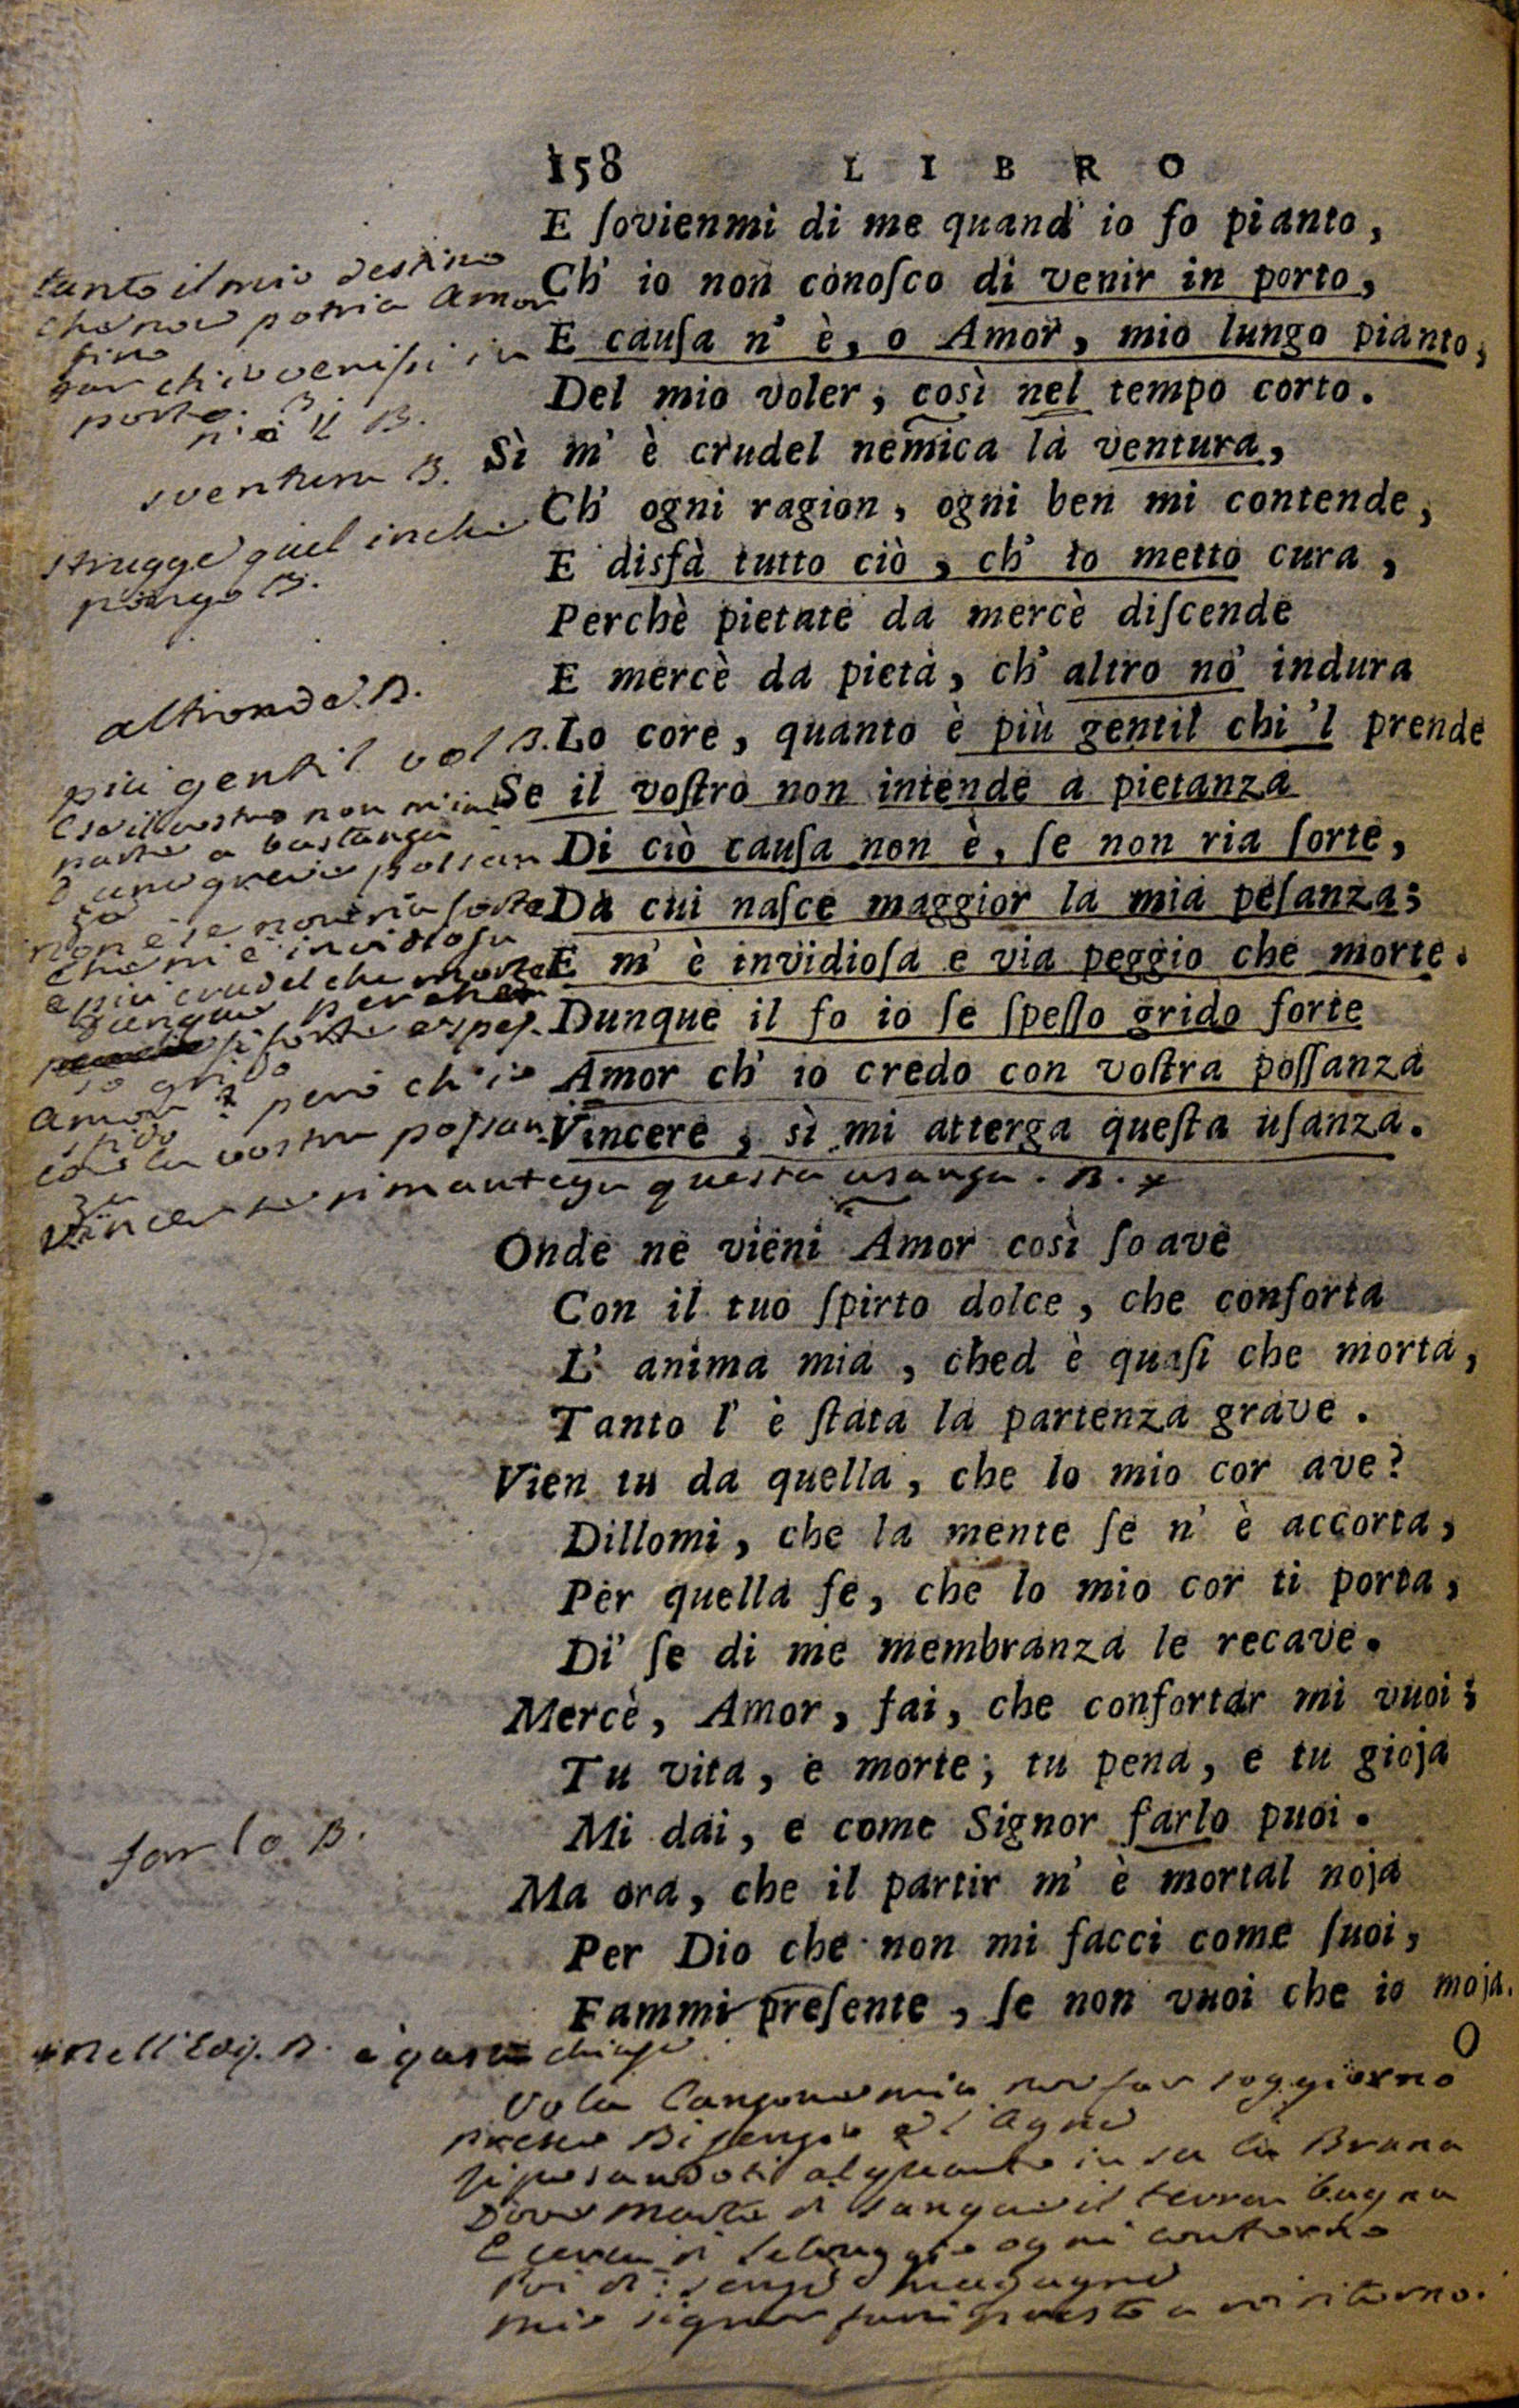 158 LIBRO
E ſovienmi di me quand' io fo pianto,
Ch' io non conoſco di venir in porto,
E cauſa n' è, o Amor, mio lungo pianto,
Del mio voler, così nel tempo corto.
Sì m' è crudel nemica la ventura,
Ch' ogni ragion, ogni ben mi contende,
E disfà tutto ciò, ch' io metto cura,
Perchè pietate da mercè diſcende
E mercè da pietà, ch' altro no' indura
Lo core, quanto è più gentil chi 'l prende
Se il voſtro non intende a pietanza
Di ciò cauſa non è, ſe non ria ſorte,
Da cui naſce maggior la mia peſanza;
E m' è invidioſa e via peggio che morte.
Dunque il fo io ſe ſpeſſo grido forte
Amor ch' io credo con voſtra poſſanza
Vincere, sì mi atterga queſta uſanza.
Onde ne vieni Amor così ſoave
Con il tuo ſpirto dolce, che conforta
L' anima mia, ched è quaſi che morta,
Tanto l' è ſtata la partenza grave.
Vien tu da quella, che lo mio cor ave?
Dillomi, che la mente ſe n' è accorta,
Per quella fe, che lo mio cor ti porta,
Di' ſe di me membranza le recave.
Mercè, Amor, fai, che confortar mi vuoi;
Tu vita, e morte; tu pena, e tu gioja
Mi dai, e come Signor farlo puoi.
Ma ora, che il partir m' è mortal noja
Per Dio che non mi facci come ſuoi,
Fammi preſente, ſe non vuoi che io moja.
O
tanto il mio destino
che non potria Amor
fino
far ch'io venissi in
porto. B.
n'è il B.
sventura B.
strugge quel in che
pongo B.
altronde. B.
più gentil vol B.
E se il vostro non m'in
a bastanza
non è se non ria sorte
che m'è invidiosa
e più crudel che morte
Dunque perchè
sì forte e spes-
so grido
Amor? però ch'io
fido
con la vostra possan-
za
Vincer se si mantegn questa usanza. B. x
farlo B.
nell'ediz. B. è questa chiusa
Vola Canzone mia non far soggiorno
presso Bisenzio e l'Agna
riposandoti alquanto in su la Brana
Dove Marte di sangue il terren bagna
E cerca di selvaggio ogni contorno
Poi di: senza magagna
mio signor fami presto a voi ritorno.